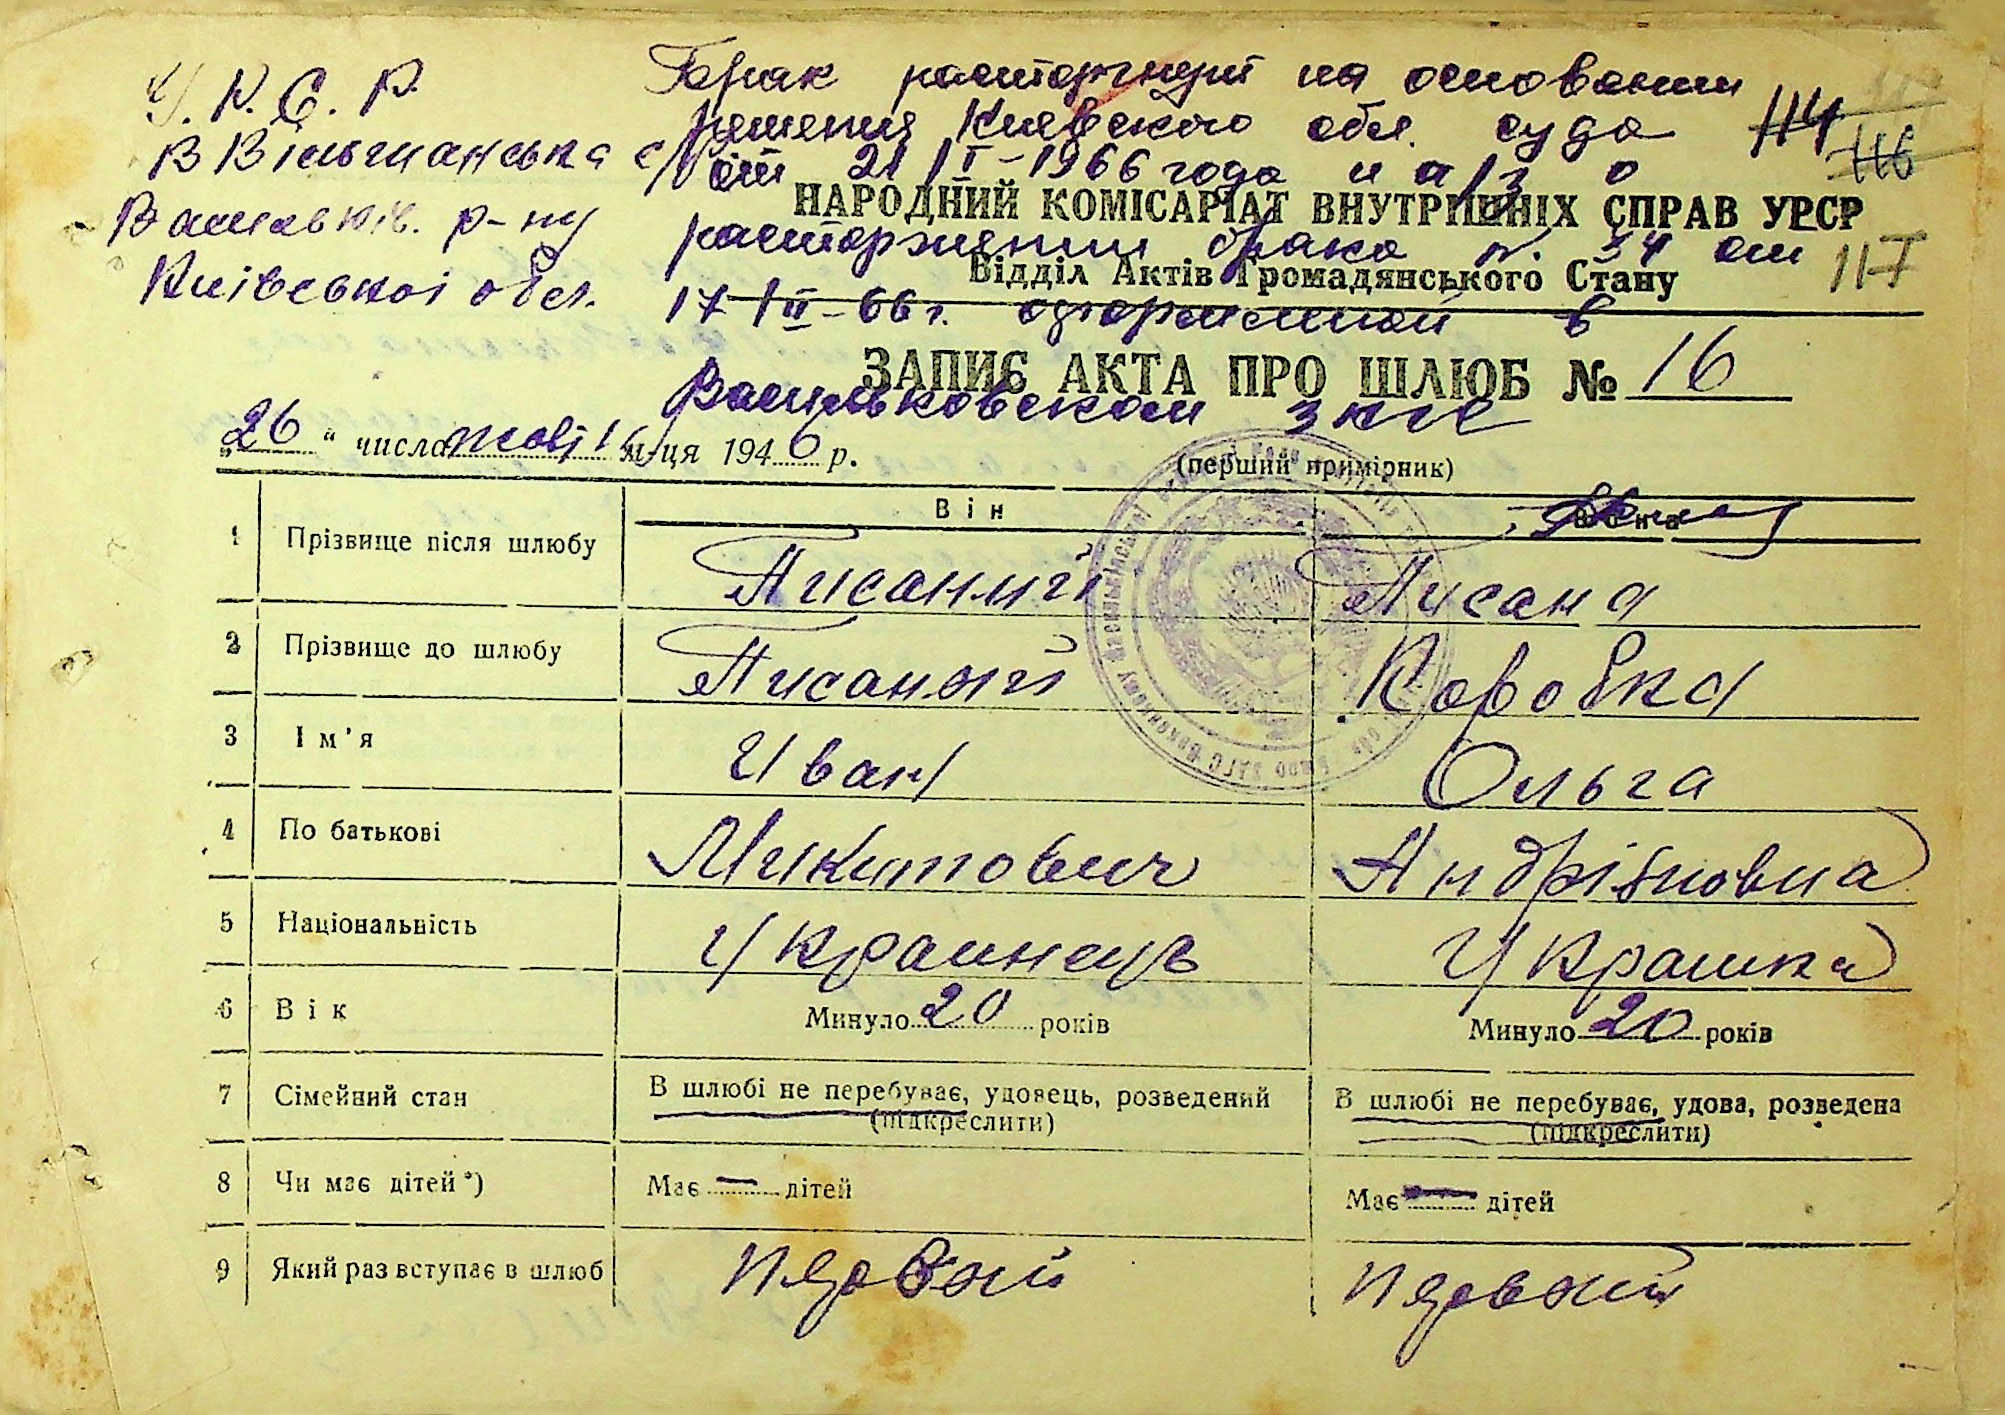 У. Р. С. Р.
В Вільшанська с/р
Васильків. р-ну
Київської обл.
Брак расторгнут на основании
решения Киевского обл. суда
от 21/I-1966 года и а/з о
расторжении брака №. 34 от
17/II-66 г. оформленной в
Васильковском загсе
114
116
117
НАРОДНИЙ КОМІСАРІАТ ВНУТРІШНІХ СПРАВ УРСР
Відділ Актів Громадянського Стану
ЗАПИС АКТА ПРО ШЛЮБ № 16
„26“ числа м-ця 1946 р.
(перший примірник)
Він Вона
1 Прізвище після шлюбу Писаний Писана
2 Прізвище до шлюбу Писаний Коробка
3 Ім'я Иван Ольга
4 По батькові Микитович Андріївна
5 Національність Украинець Украинка
6 Вік Минуло 20 років Минуло 20 років
7 Сімейний стан В шлюбі не перебуває, удовець, розведений В шлюбі не перебуває, удова, розведена
(підкреслити) (підкреслити)
8 Чи має дітей*) Має — дітей Має — дітей
9 Який раз вступає в шлюб